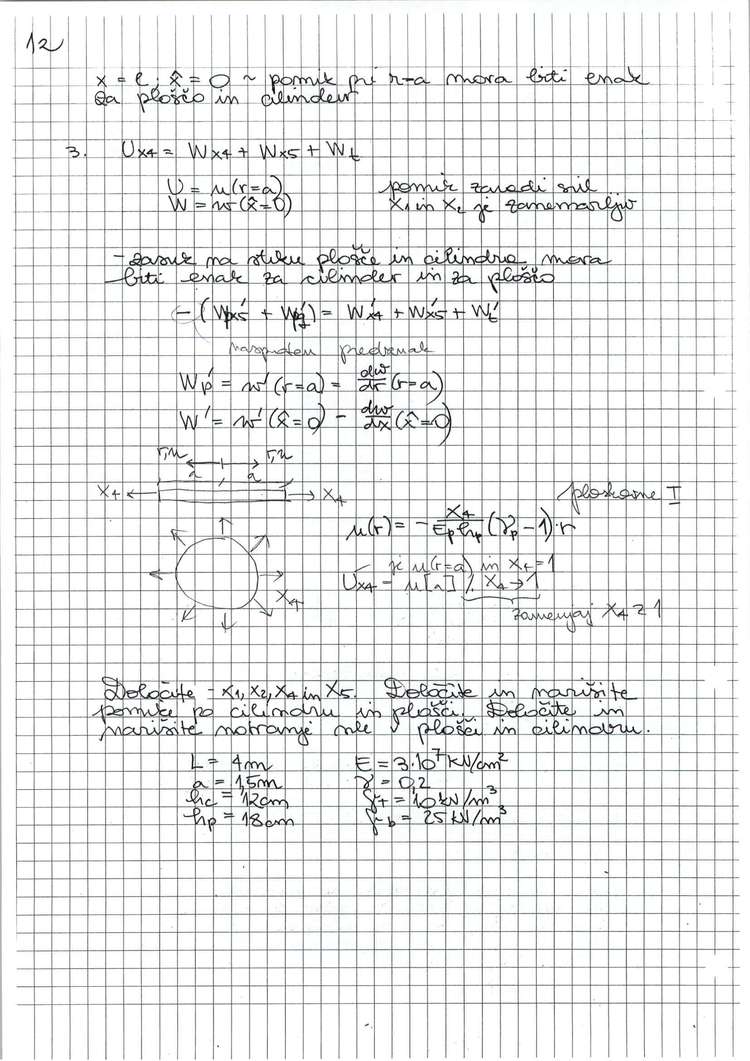 12
x = l; x̂ = 0 ~ pomik pri r=a mora biti enak
za ploščo in cilinder
3. Ux4 = Wx4 + Wx5 + Wt
U = u(r=a) pomik zaradi sil
W = w(x̂=0) X1 in X2 je zanemarljiv
- zasuk na stiku plošče in cilindra mora
biti enak za cilinder in za ploščo
- (Wpx5' + Wpq') = Wx4' + Wx5' + Wt'
nasproten predznak
Wp' = w'(r=a) = dw/dr (r=a)
W' = w'(x̂=0) - dw/dx (x̂=0)
r,u r,u
a a
X4 X4
ploskovne I
u(r) = - X4/(Ep hp) (γp - 1)·r
je u(r=a) in X4=1
Ux4 = u[a] /. X4 → 1
X4
zamenjaj X4 z 1
Določite - X1, X2, X4 in X5. Določite in narišite
pomike po cilindru in plošči. Določite in
narišite notranje sile v plošči in cilindru.
L = 4m E = 3·10⁷ kN/cm²
a = 1,5m γ = 0,2
hc = 12cm γt = 10 kN/m³
hp = 18cm γb = 25 kN/m³